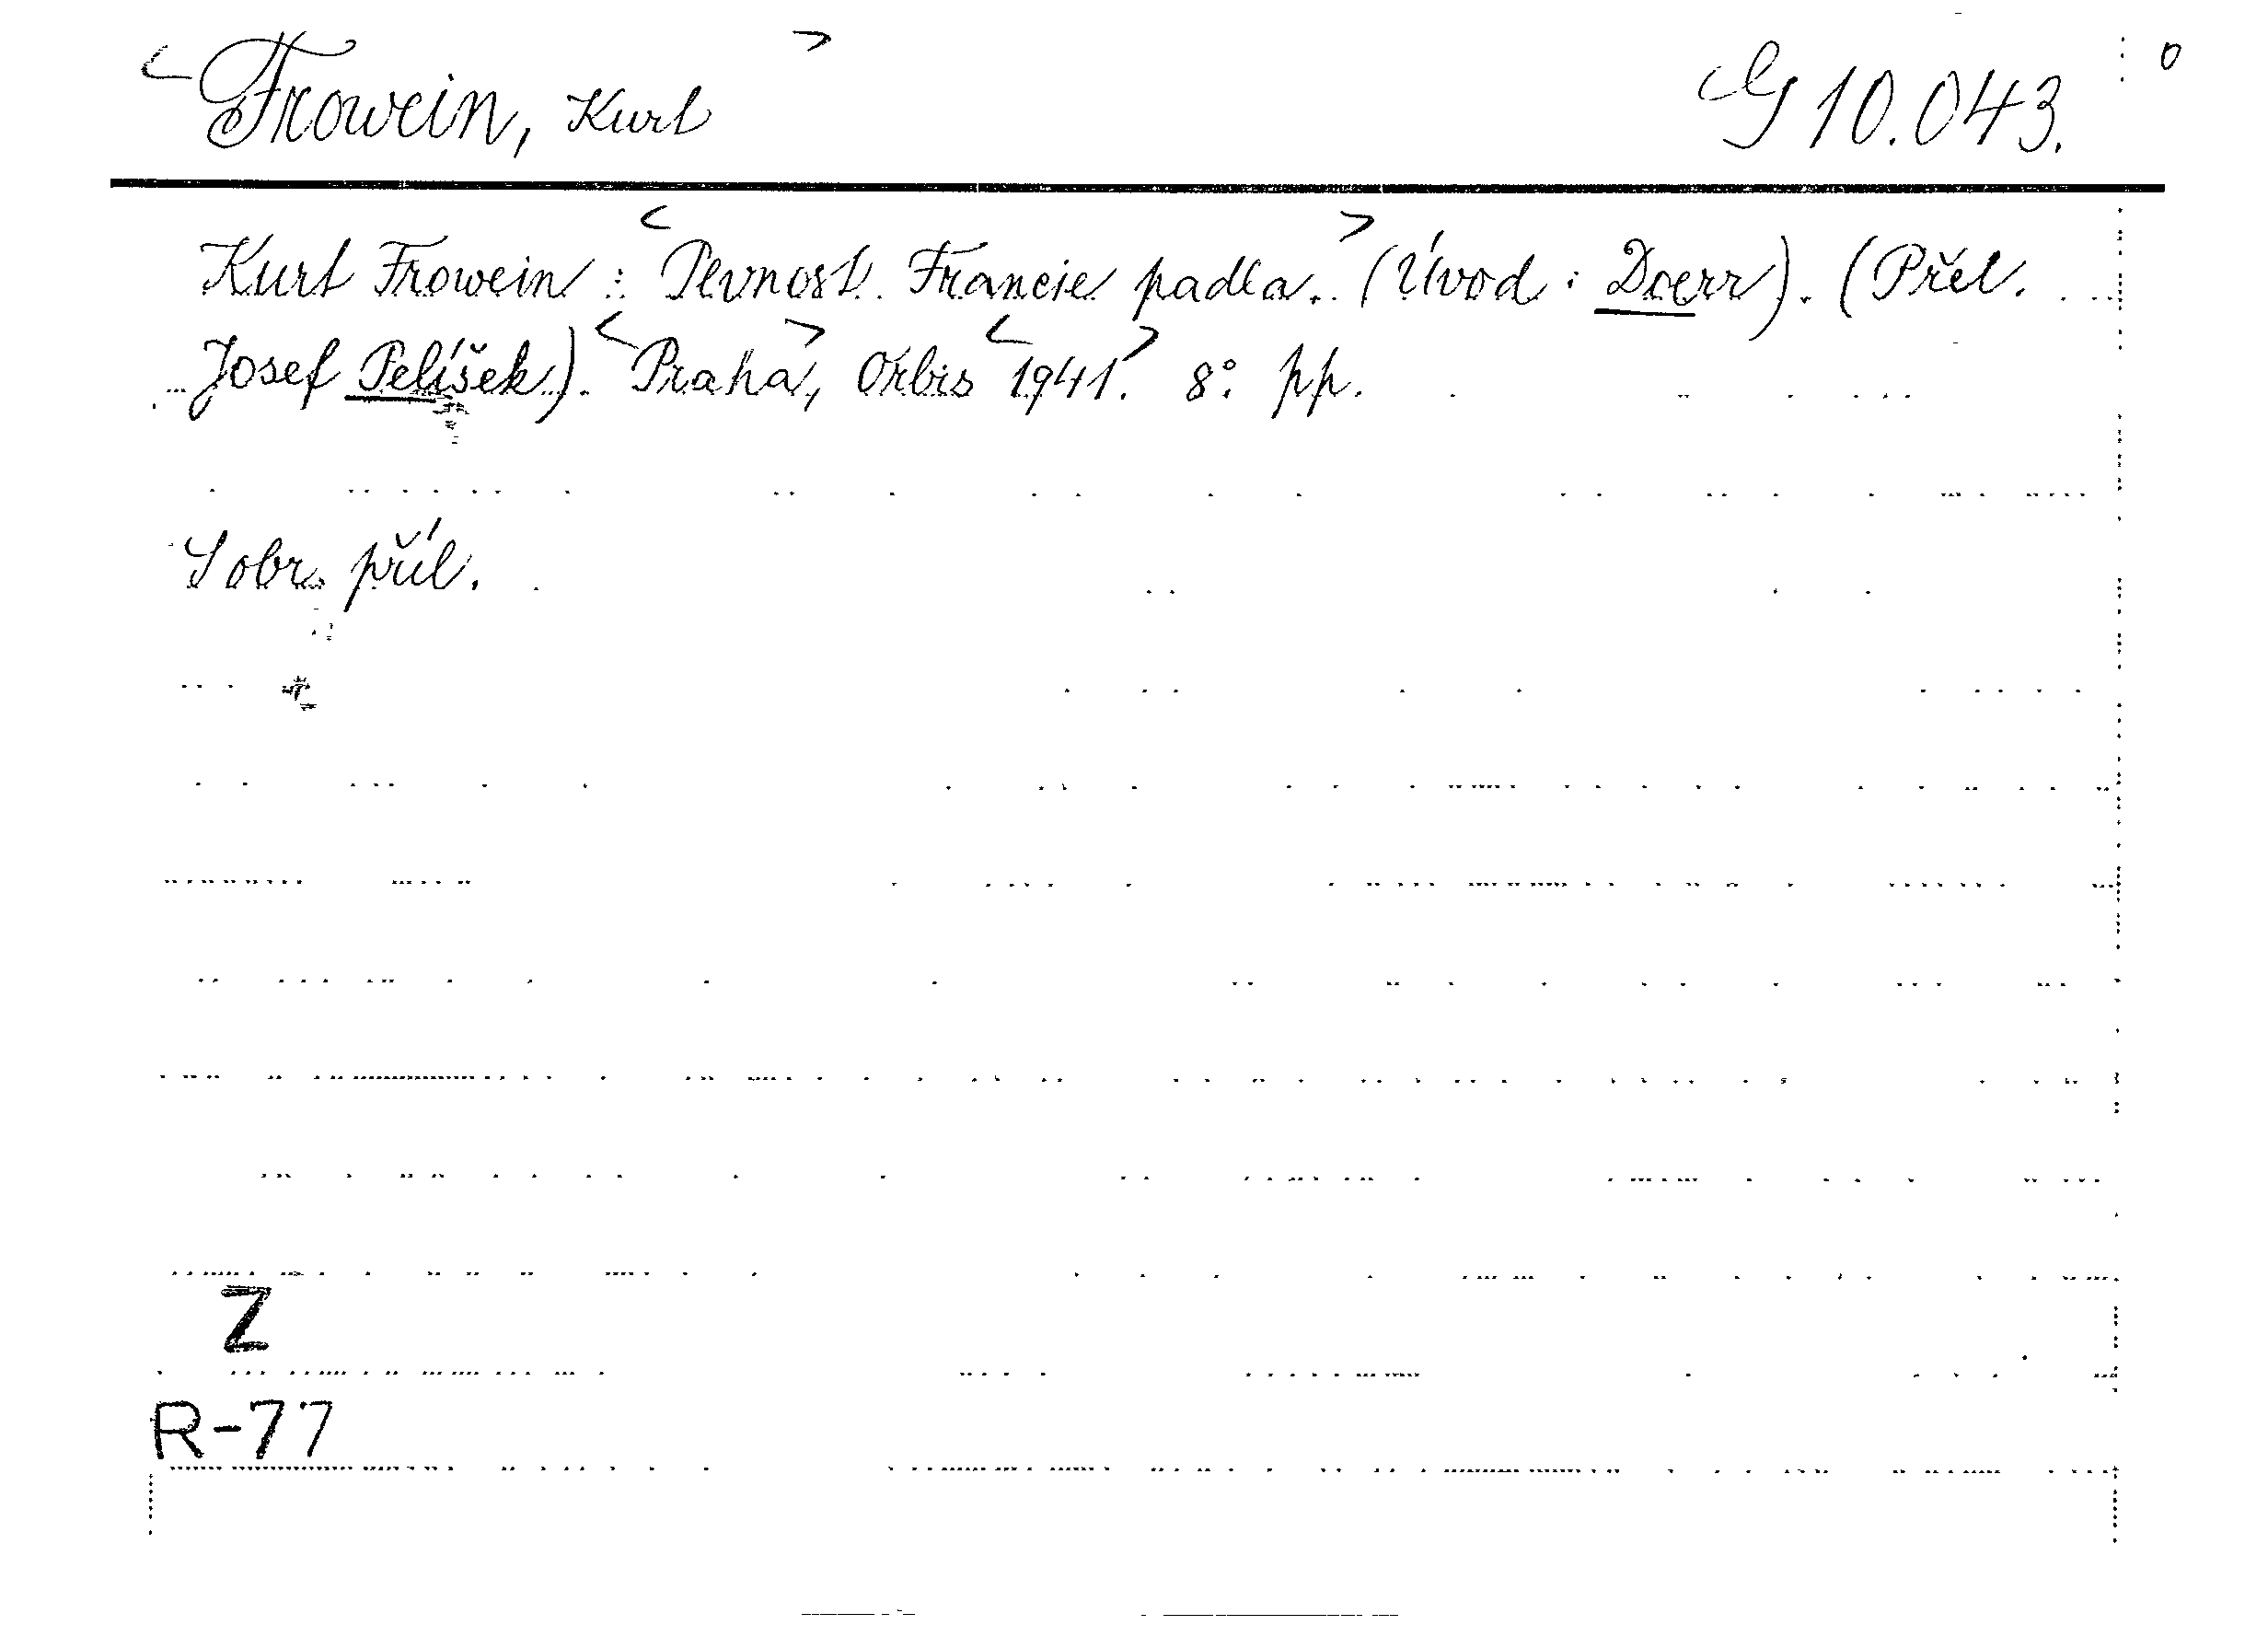 <Frowein, Kurt> G 10.043. 0
Kurt Frowein : <Pevnost Francie padla.> (Úvod : Doerr). (Přel.
Josef Pelíšek). <Praha>, Orbis <1941>. 8°. pp.
S obr. příl.
Z
R-77